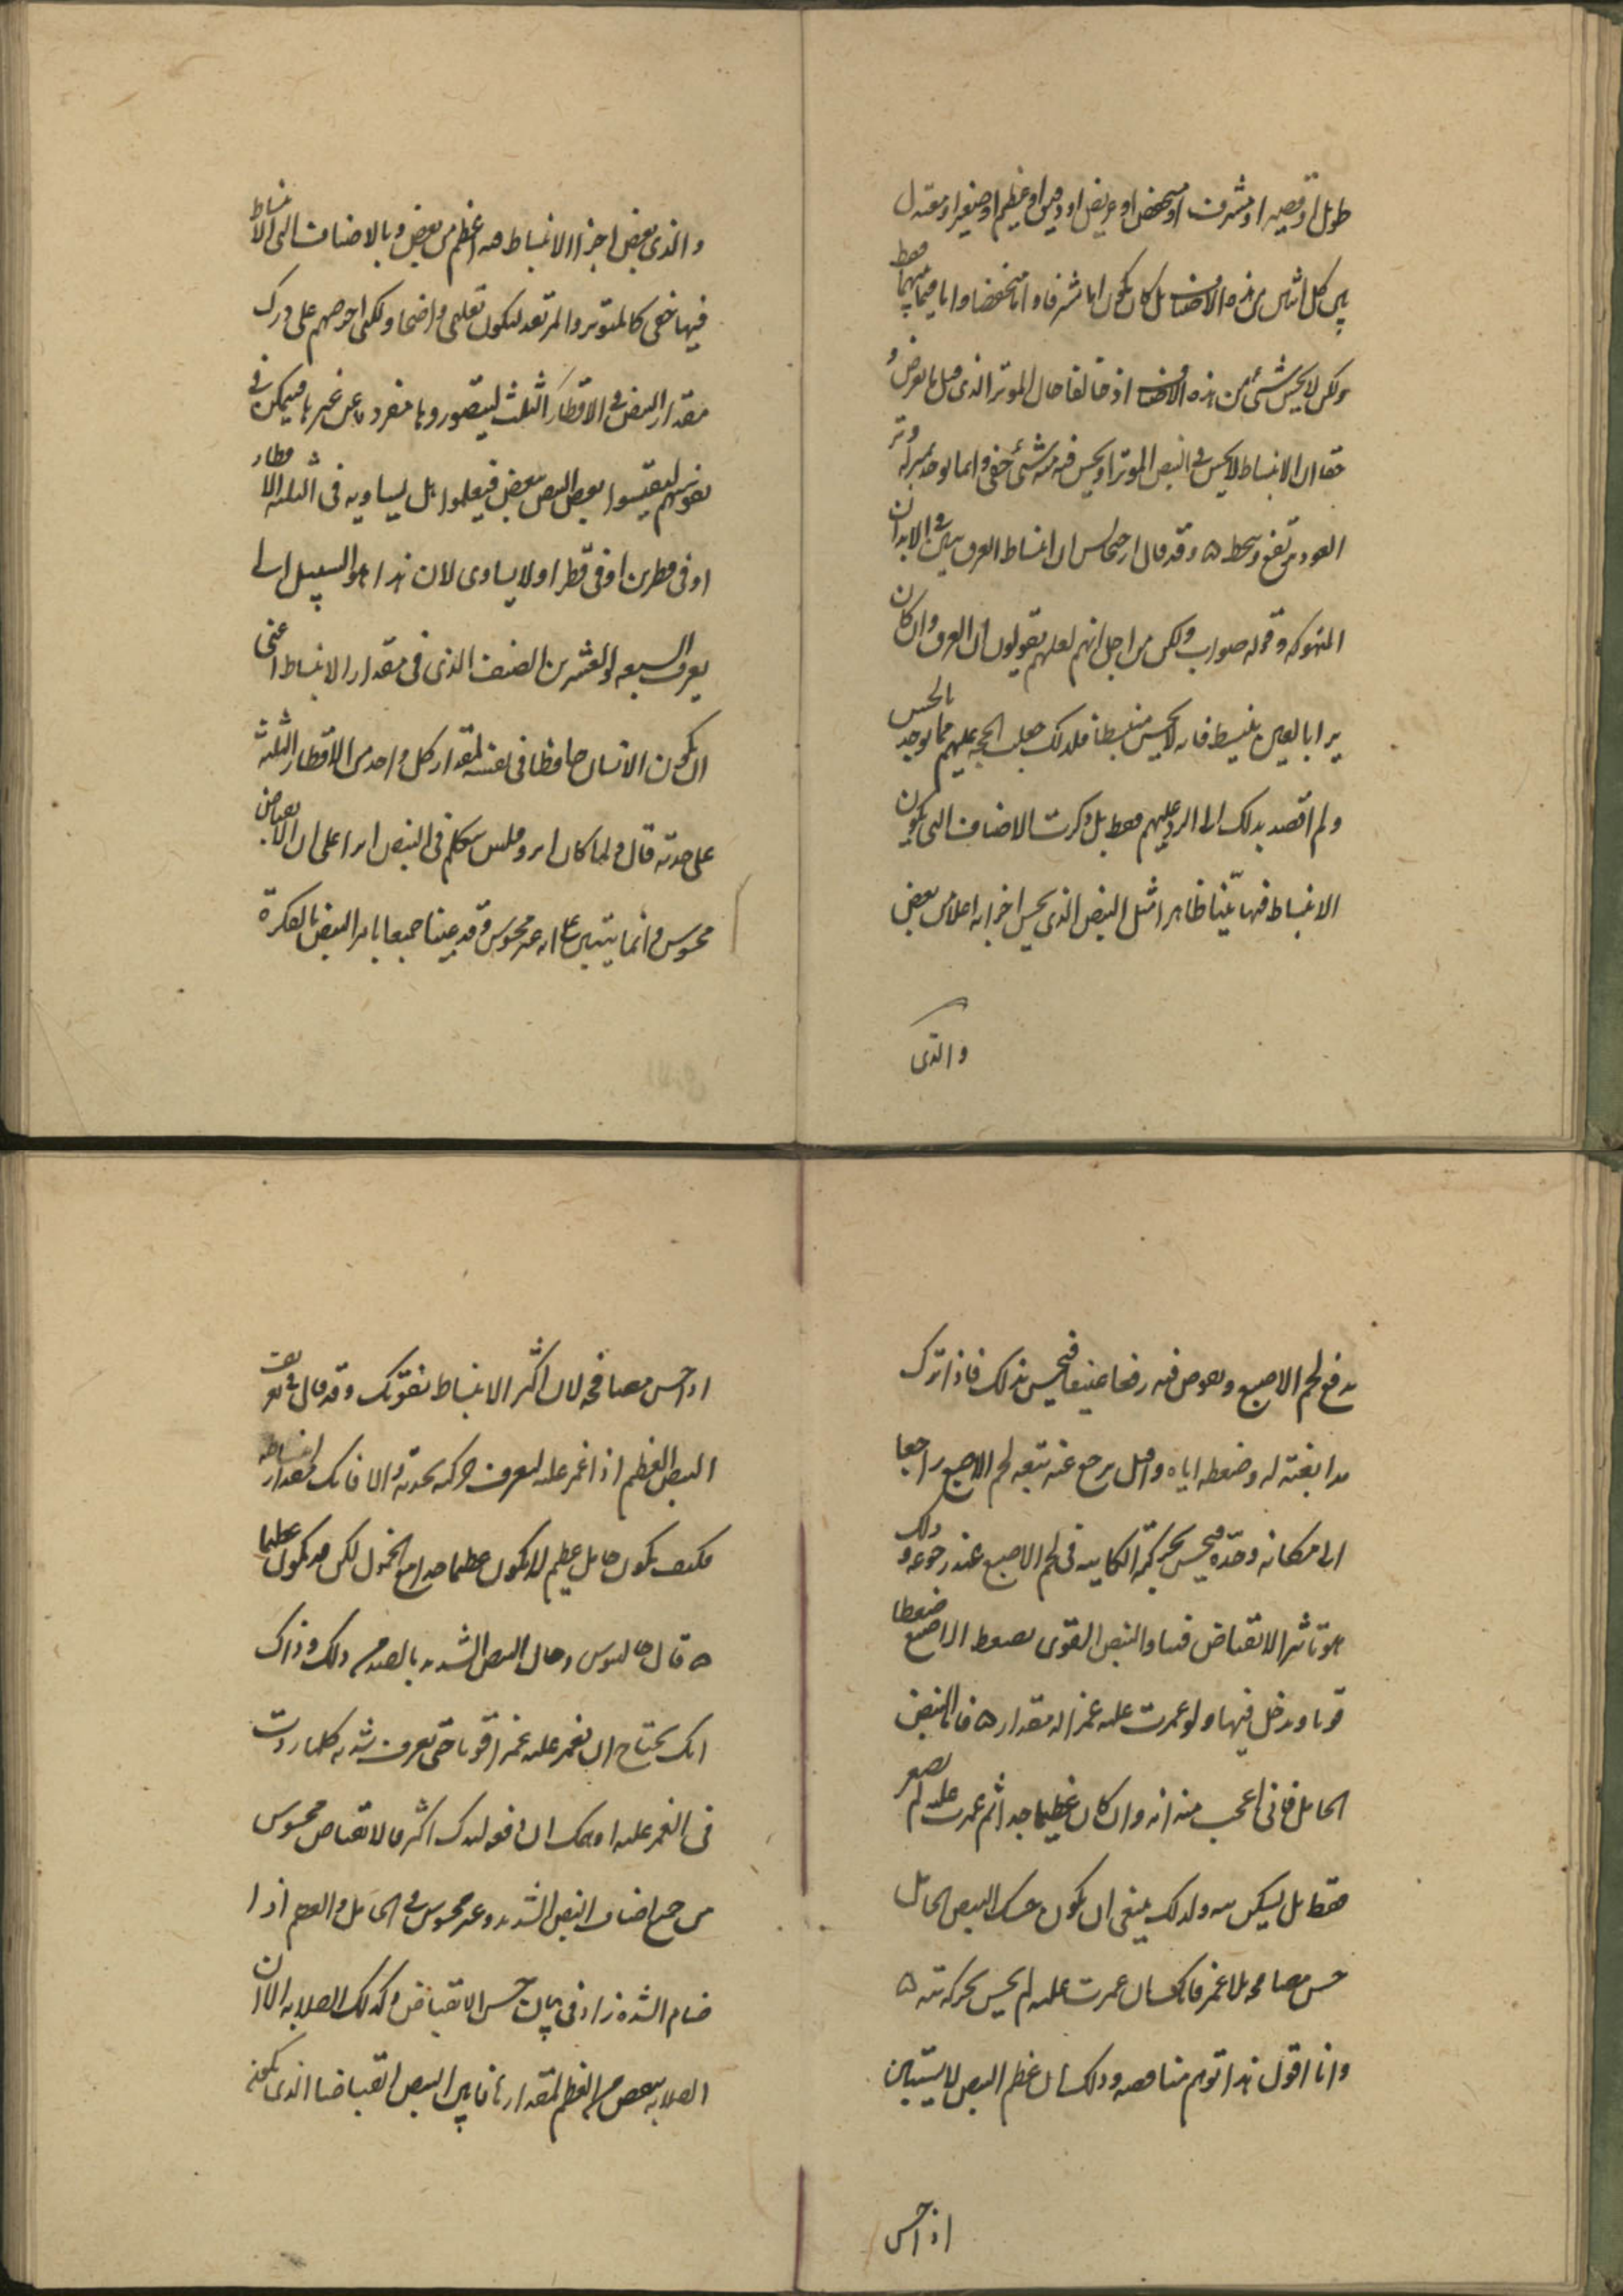 طويل او قصير او مشرف او منخفض او عريض او دقيق او عظيم او صغير او معتدل
بين كل اثنين من هذه الاصناف بل كان يكون اما مشرفا و اما منخفضا و اما فيما بينهما فقط
ولكن لا يحس شئ من هذه الاصناف اذ خالفا حال الموتر الذى قيل ما يعرض و
حقا ان الانبساط لا يحس فى النبض الموتر او يحس فيه منه شئ خفى و انما يوجد بمنزلة وتر
العود يرتفع و ينحط ه وقد قال ارخيجانس ان انبساط العرق يبين فى الابدان
المنهوكة و قوله صواب ولكن من اجل انهم لعلهم يقولون ان العرق وان كان
يرا بالعين ينبسط فانه لا يحس منبسطا فلذلك جعلت الحجة عليهم مما يوجد بالحس
ولم اقصد بذلك الى الرد عليهم فقط بل ذكرت الاصناف التى يكون
الانبساط فيها بينا ظاهرا مثل النبض الذى يحس اجزايه اعلا من بعض
والذى
والذى بعض اجزا الانبساط منه اعظم من بعض و بالاصناف التى الانبساط
فيها خفى كالمتوتر والمرتعد ليكون تعليمى واضحا ولكنى احرصهم على درك
مقدار النبض فى الاقطار الثلث ليتصوروها مفردة عن غيرها فيمكن فى
نفوسهم ليقيسوا بعض النبض ببعض فيعلموا هل يساويه فى الثلثة الاقطار
او فى قطرين او فى قطر او لا يساوى لان هذا هو السبيل الى
يعرف السبعه والعشرين الصنف الذى فى مقدار الانبساط اعنى
ان يكون الانسان حافظا فى نفسه لمقدار كل واحد من الاقطار الثلثة
على حدته قال ولما كان ايروفيلس يتكلم فى النبض ابدا على ان الانقباض
محسوس و انما يتبين على انه غير محسوس وقد عنينا جميعا بامر النبض بالفكرة
يدفع لحم الاصبع و يغوص فيه رفعا عنيفا فيحس بذلك فاذا ترك
مدافعته له وضغطه اياه و اقبل يرجع عنه تبعه لحم الاصبع راجعا
الى مكانه وحده فيحس بحركته الكاينة فى لحم الاصبع عند رجوعه و ذلك
هو تاثير الانقباض فينا والنبض القوى يضغط الاصبع ضغطا
قويا و يدخل فيها ولو غمزت عليه غمزا له مقدار ه فاما النبض
الخامل فانى اعجب منه انه وان كان عظيما جدا ثم غمزت عليه لم يصغر
فقط بل يسكن منه ولذلك ينبغى ان يكون حسك النبض الخامل
حس مصافحة بلا غمز فانك ان غمزت عليه لم يحس بحركة بتة ه
وانا اقول هذا توهم مناقضة وذلك ان عظم النبض لا يستبين
اذ احس
اذ احس مصافحة لان اكثر الانبساط يفوتك وقد قال فى تعرف
النبض العظيم اذ اغمز عليه ليعرف حركة بحدته والا فاتك مقدار انبساطه
فكيف يكون خامل عظيم الا يكون عظيما جدا مع الخمول لكن قد يكون عظيما
ه قال جالينوس وحال النبض الشديد بالضد من ذلك وذاك
انك تحتاج ان تغمز عليه غمزا قويا حتى تعرف شدته كلما زدت
فى الغمز عليه امكنك ان دفعه ليدك اكثر فالانقباض محسوس
من جميع اصناف النبض الشديد وغير محسوس فى الخامل والعظم اذا
ضام الشدة زاد فى بيان حس الانقباض وكذلك الصلابة الا ان
الصلابة ينقص من العظم لمقدار ما فابين النبض انقباضا الذى يمكنه